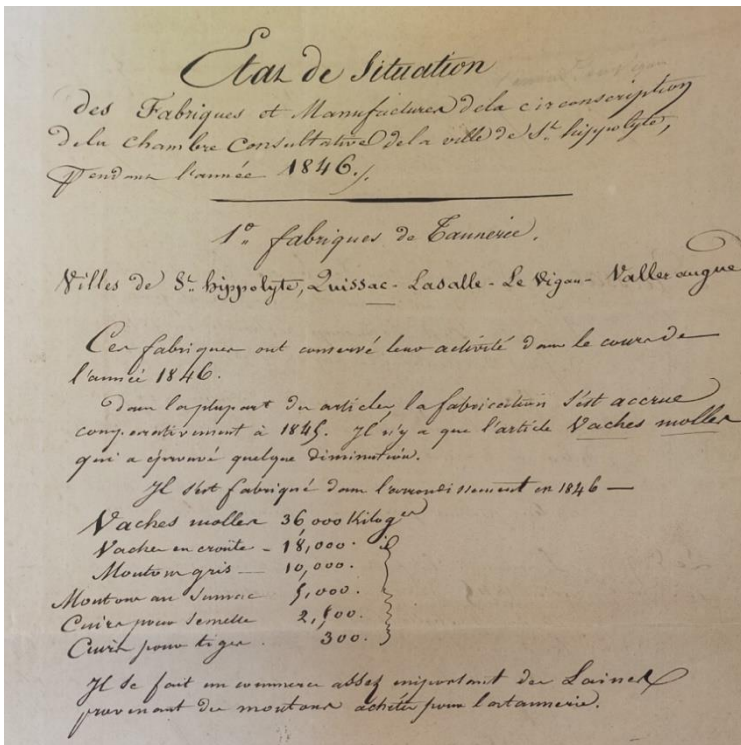 Etat de Situation
des Fabriques et Manufactures de la circonscription
de la chambre Consultative de la ville de St. hippolyte,
Pendant l'année 1846./.
1o. fabriques de Tannerie.
Villes de St. hippolyte, Quissac - Lasalle - Le Vigan - Valleraugue
Ces fabriques ont conservé leur activité dans le cours de
l'année 1846.
Dans la plupart des articles, la fabrication s'est accrue
comparativement à 1845. Il n'y a que l'article Vaches molles
qui a éprouvé quelque diminution.
Il s'est fabriqué dans l'arrondissement en 1846 —
Vaches molles 36,000 Kiloges
Vaches en croûte - 18,000. id
Moutons gris — 10,000.
Moutons au Sumac 5,000.
Cuirs pour Semelle 2,500.
Cuirs pour tiges . 300.
Il se fait un commerce assez important des Laines
provenant des moutons achetés pour la tannerie.